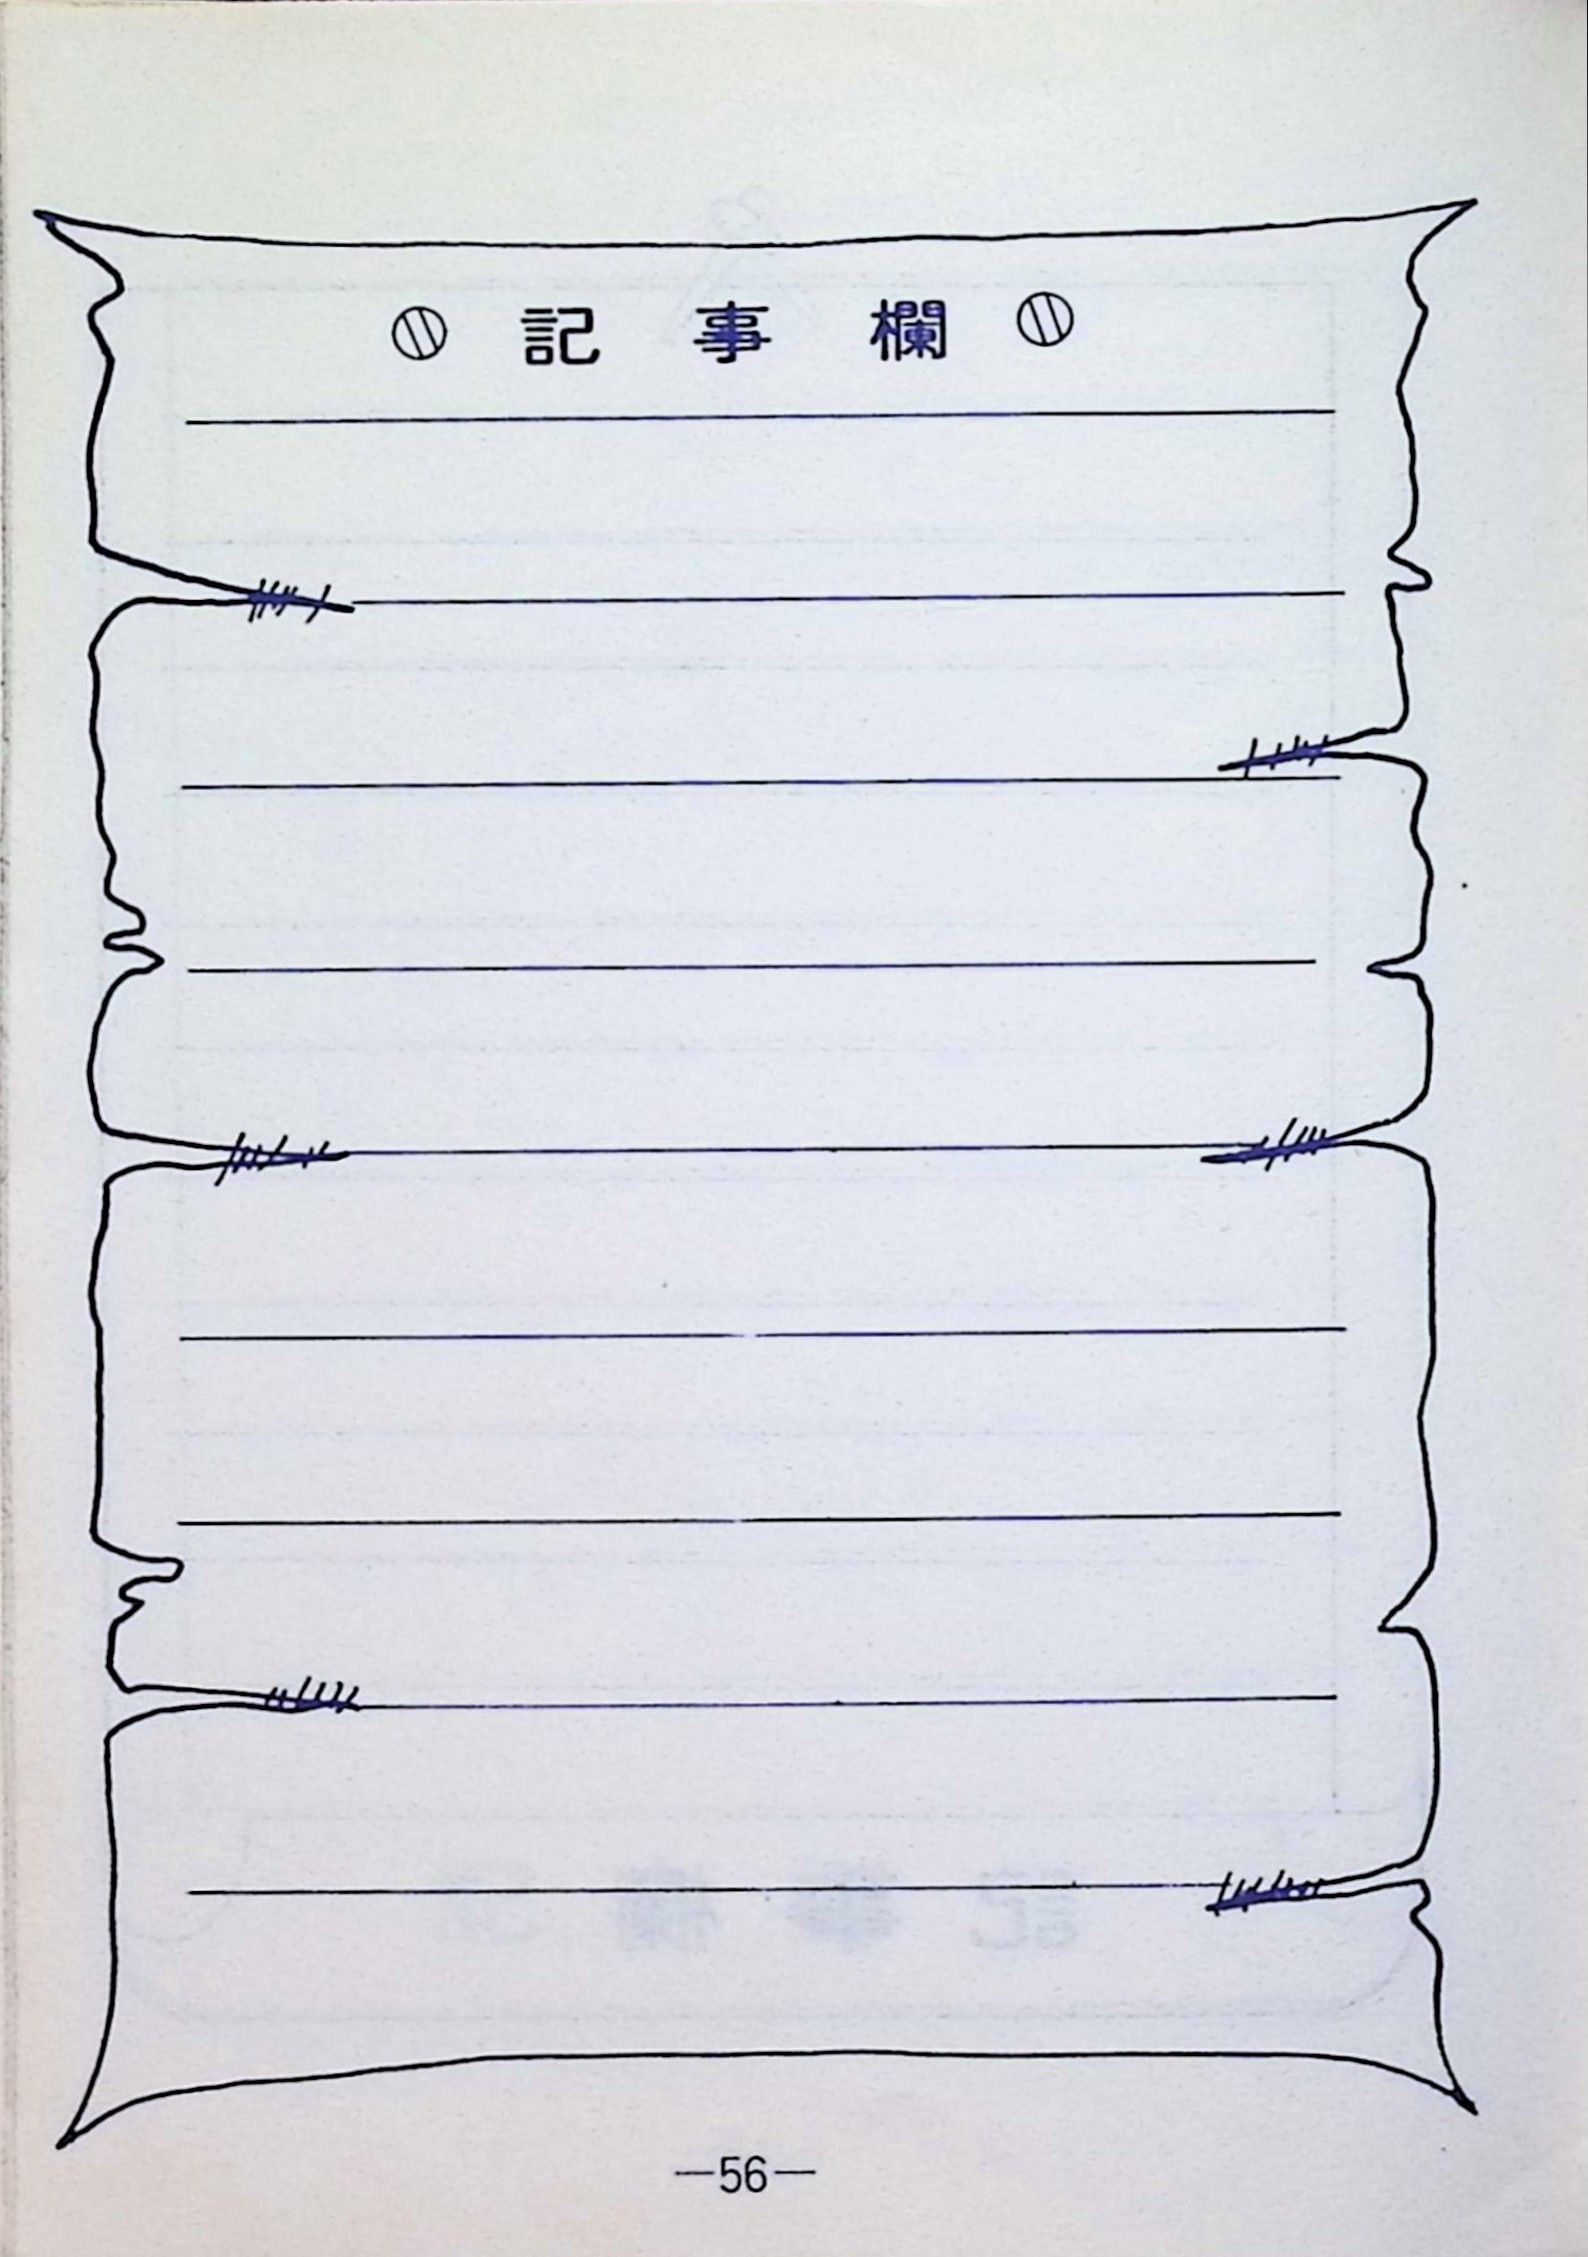 記事欄
—56—